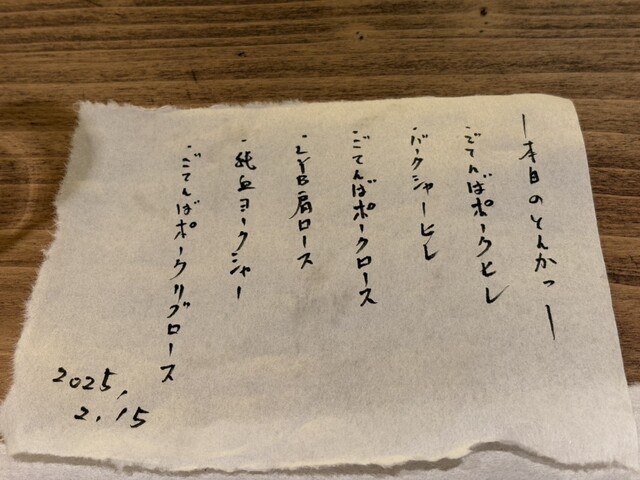 ー本日のとんかつー
・ごてんばポークヒレ
・バークシャーヒレ
・ごてんばポークロース
・LYB肩ロース
・純血ヨークシャー
・ごてんばポークリブロース
2025,
2.15